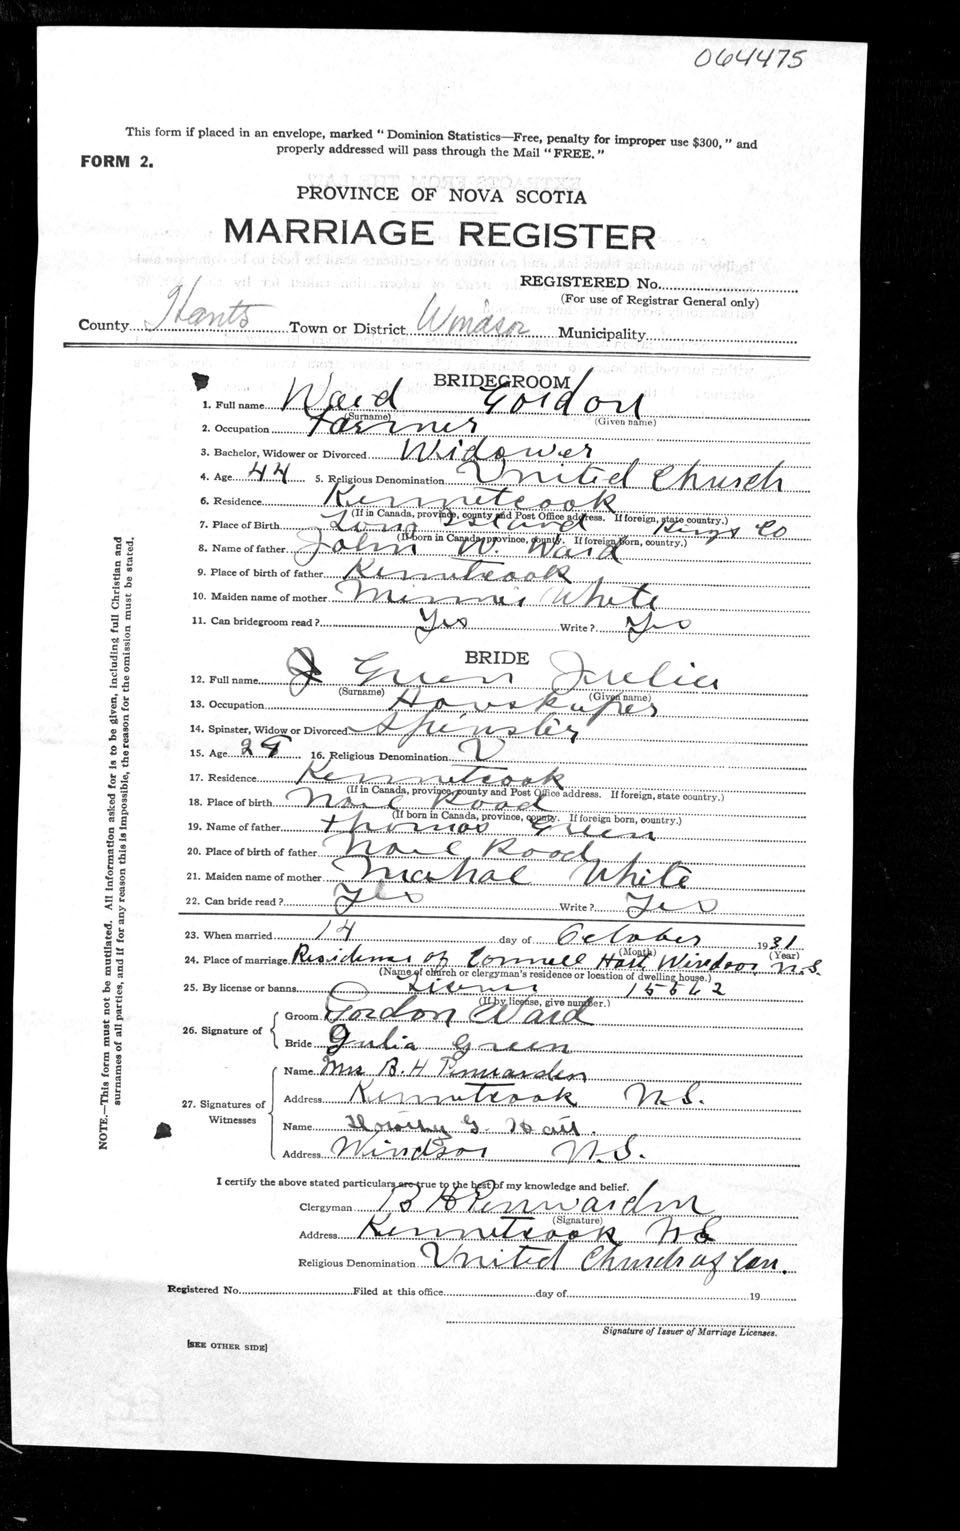 064475
This form if placed in an envelope, marked "Dominion Statistics—Free, penalty for improper use $300," and
properly addressed will pass through the Mail "FREE."
FORM 2.
PROVINCE OF NOVA SCOTIA
MARRIAGE REGISTER
REGISTERED No.
(For use of Registrar General only)
County Hants Town or District Windsor Municipality
BRIDEGROOM
1. Full name Ward Gordon
(Surname) (Given name)
2. Occupation Farmer
3. Bachelor, Widower or Divorced Widower
4. Age 44 5. Religious Denomination United Church
6. Residence Kennetcook
(If in Canada, province, county and Post Office address. If foreign, state country.)
7. Place of Birth Long Island Kings Co
(If born in Canada, province, county. If foreign born, country.)
8. Name of father John W. Ward
9. Place of birth of father Kennetcook
10. Maiden name of mother Minnie White
11. Can bridegroom read? Yes Write? Yes
BRIDE
12. Full name Green Julia
(Surname) (Given name)
13. Occupation
14. Spinster, Widow or Divorced Spinster
15. Age 29 16. Religious Denomination U
17. Residence Kennetcook
(If in Canada, province, county and Post Office address. If foreign, state country.)
18. Place of birth Noel Road
(If born in Canada, province, county. If foreign born, country.)
19. Name of father Thomas Green
20. Place of birth of father Noel Road
21. Maiden name of mother White
22. Can bride read? Yes Write? Yes
23. When married 14 day of October 1931
(Month) (Year)
24. Place of marriage Residence of Connell Hart Windsor N.S.
(Name of church or clergyman's residence or location of dwelling house.)
25. By license or banns License 15562
(If by license, give number.)
26. Signature of Groom Gordon Ward
Bride Julia Green
27. Signatures of Witnesses Name Mrs B. H Penwarden
Address Kennetcook N.S.
Name Dorothy G. Hart.
Address Windsor N.S.
I certify the above stated particulars are true to the best of my knowledge and belief.
Clergyman B H Penwarden
(Signature)
Address Kennetcook N S
Religious Denomination United Church of Can.
Registered No. Filed at this office day of 19
Signature of Issuer of Marriage Licenses.
[SEE OTHER SIDE]
NOTE.—This form must not be mutilated. All information asked for is to be given, including full Christian and
surnames of all parties, and if for any reason this is impossible, the reason for the omission must be stated.